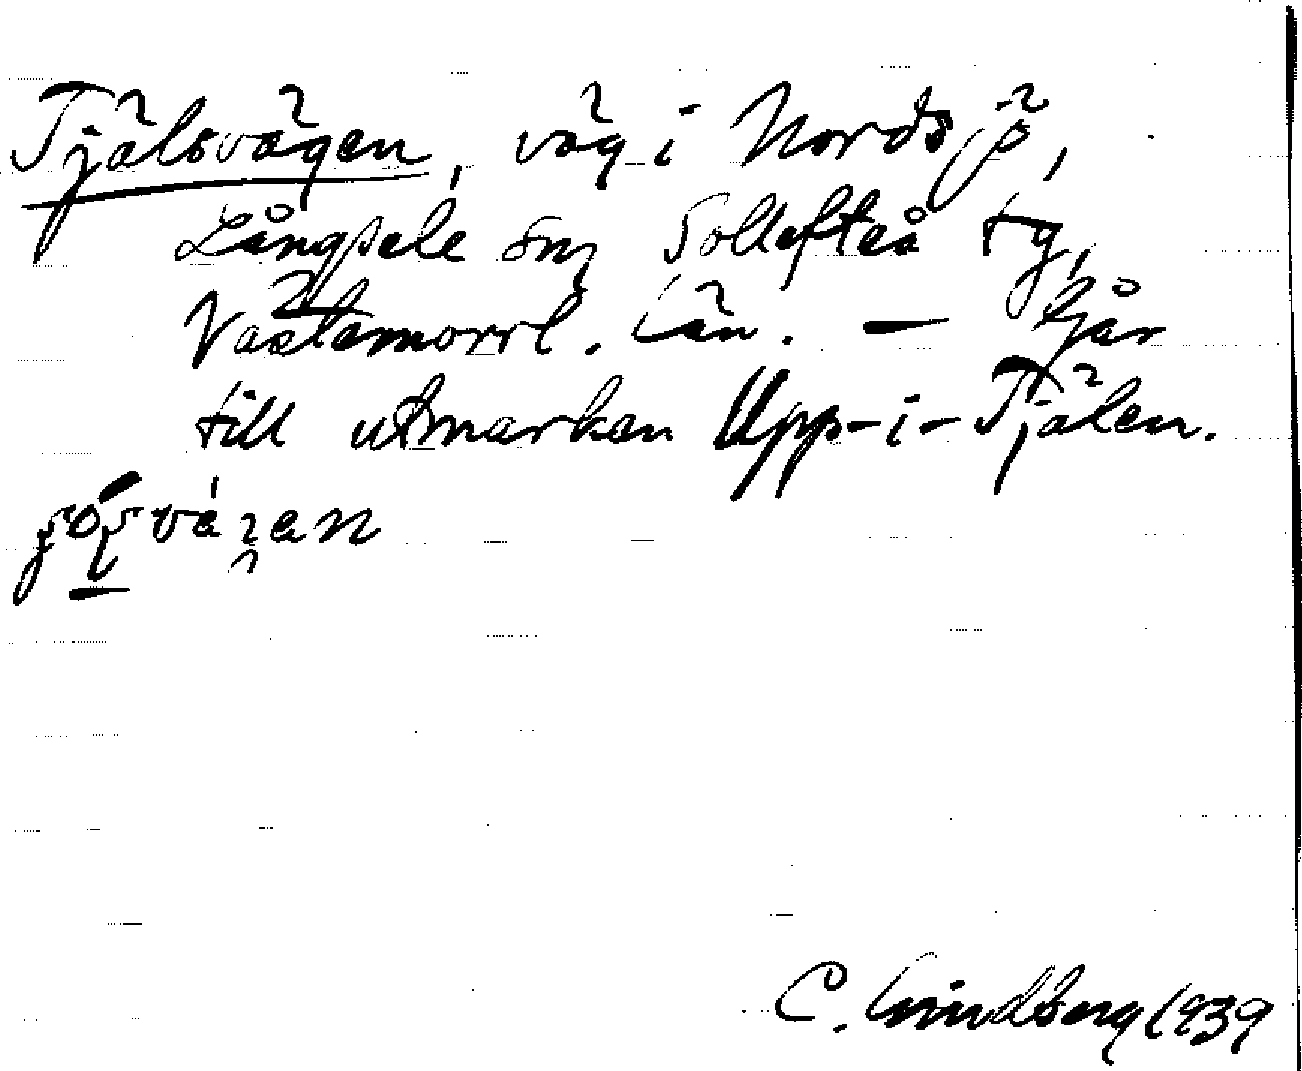 Tjälsvägen, väg i Nordsjö,
Långsele sn, Sollefteå tg,
Västernorrl. län. – Går
till utmarken Upp-i-Tjälen.
C. Lindberg 1939